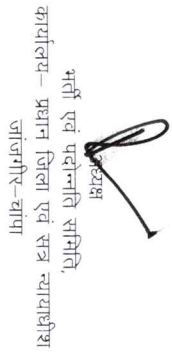 अध्यक्ष
भर्ती एवं पदोन्नति समिति,
कार्यालय– प्रधान जिला एवं सत्र न्यायाधीश
जांजगीर–चांपा